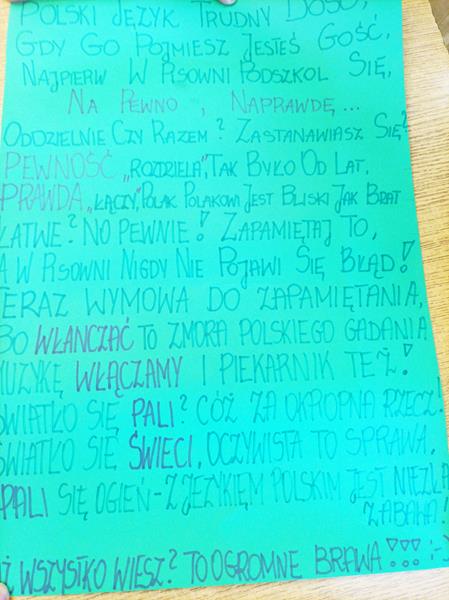 POLSKI JĘZYK TRUDNY DOŚĆ,
GDY GO POJMIESZ JESTEŚ GOŚĆ,
NAJPIERW W PISOWNI PODSZKOL SIĘ,
NA PEWNO, NAPRAWDĘ...
ODDZIELNIE CZY RAZEM? ZASTANAWIASZ SIĘ?
PEWNOŚĆ „ROZDZIELA”, TAK BYŁO OD LAT,
PRAWDA „ŁĄCZY”, POLAK POLAKOWI JEST BLISKI JAK BRAT
ŁATWE? NO PEWNIE! ZAPAMIĘTAJ TO,
A W PISOWNI NIGDY NIE POJAWI SIĘ BŁĄD!
TERAZ WYMOWA DO ZAPAMIĘTANIA,
BO WŁANCZAĆ TO ZMORA POLSKIEGO GADANIA
MUZYKĘ WŁĄCZAMY I PIEKARNIK TEŻ!
ŚWIATŁO SIĘ PALI? CÓŻ ZA OKROPNA RZECZ!
ŚWIATŁO SIĘ ŚWIECI, OCZYWISTA TO SPRAWA,
PALI SIĘ OGIEŃ - Z JĘZYKIEM POLSKIM JEST NIEZŁA
ZABAWA!
WSZYSTKO WIESZ? TO OGROMNE BRAWA!!! :-)